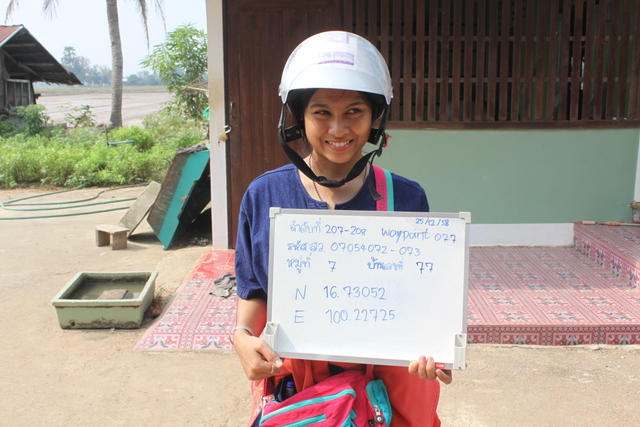 25/12/58
ลำดับที่ 207-208 Waypoint 077
รหัส สว 07054072 - 073
หมู่ที่ 7 บ้านเลขที่ 77
N 16.73052
E 100.22725